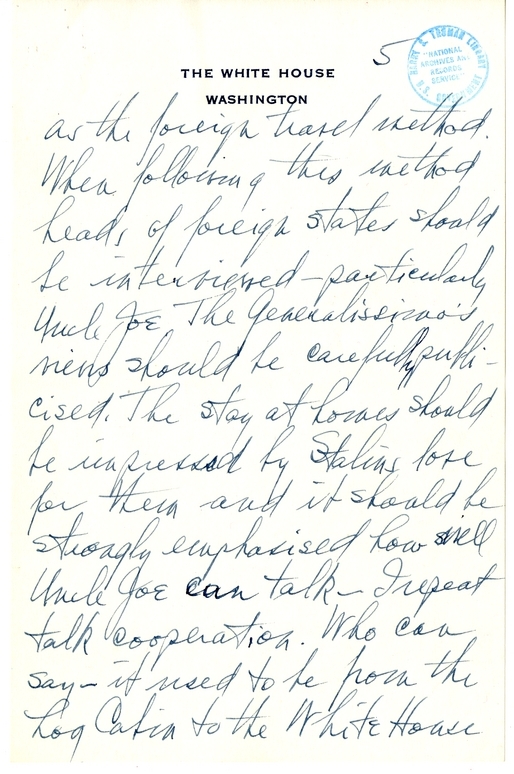 5
HARRY S. TRUMAN LIBRARY
"NATIONAL
ARCHIVES AND
RECORDS
SERVICE"
U.S. GOVERNMENT
THE WHITE HOUSE
WASHINGTON
as the foreign travel method.
When following this method
heads of foreign states should
be interviewed—particularly
Uncle Joe The Generalissimo's
views should be carefully publi-
cised. The stay at homes should
be impressed by Stalins love
for them and it should be
strongly emphasised how well
Uncle Joe can talk— I repeat
talk cooperation. Who can
say— it used to be from the
Log Cabin to the White House